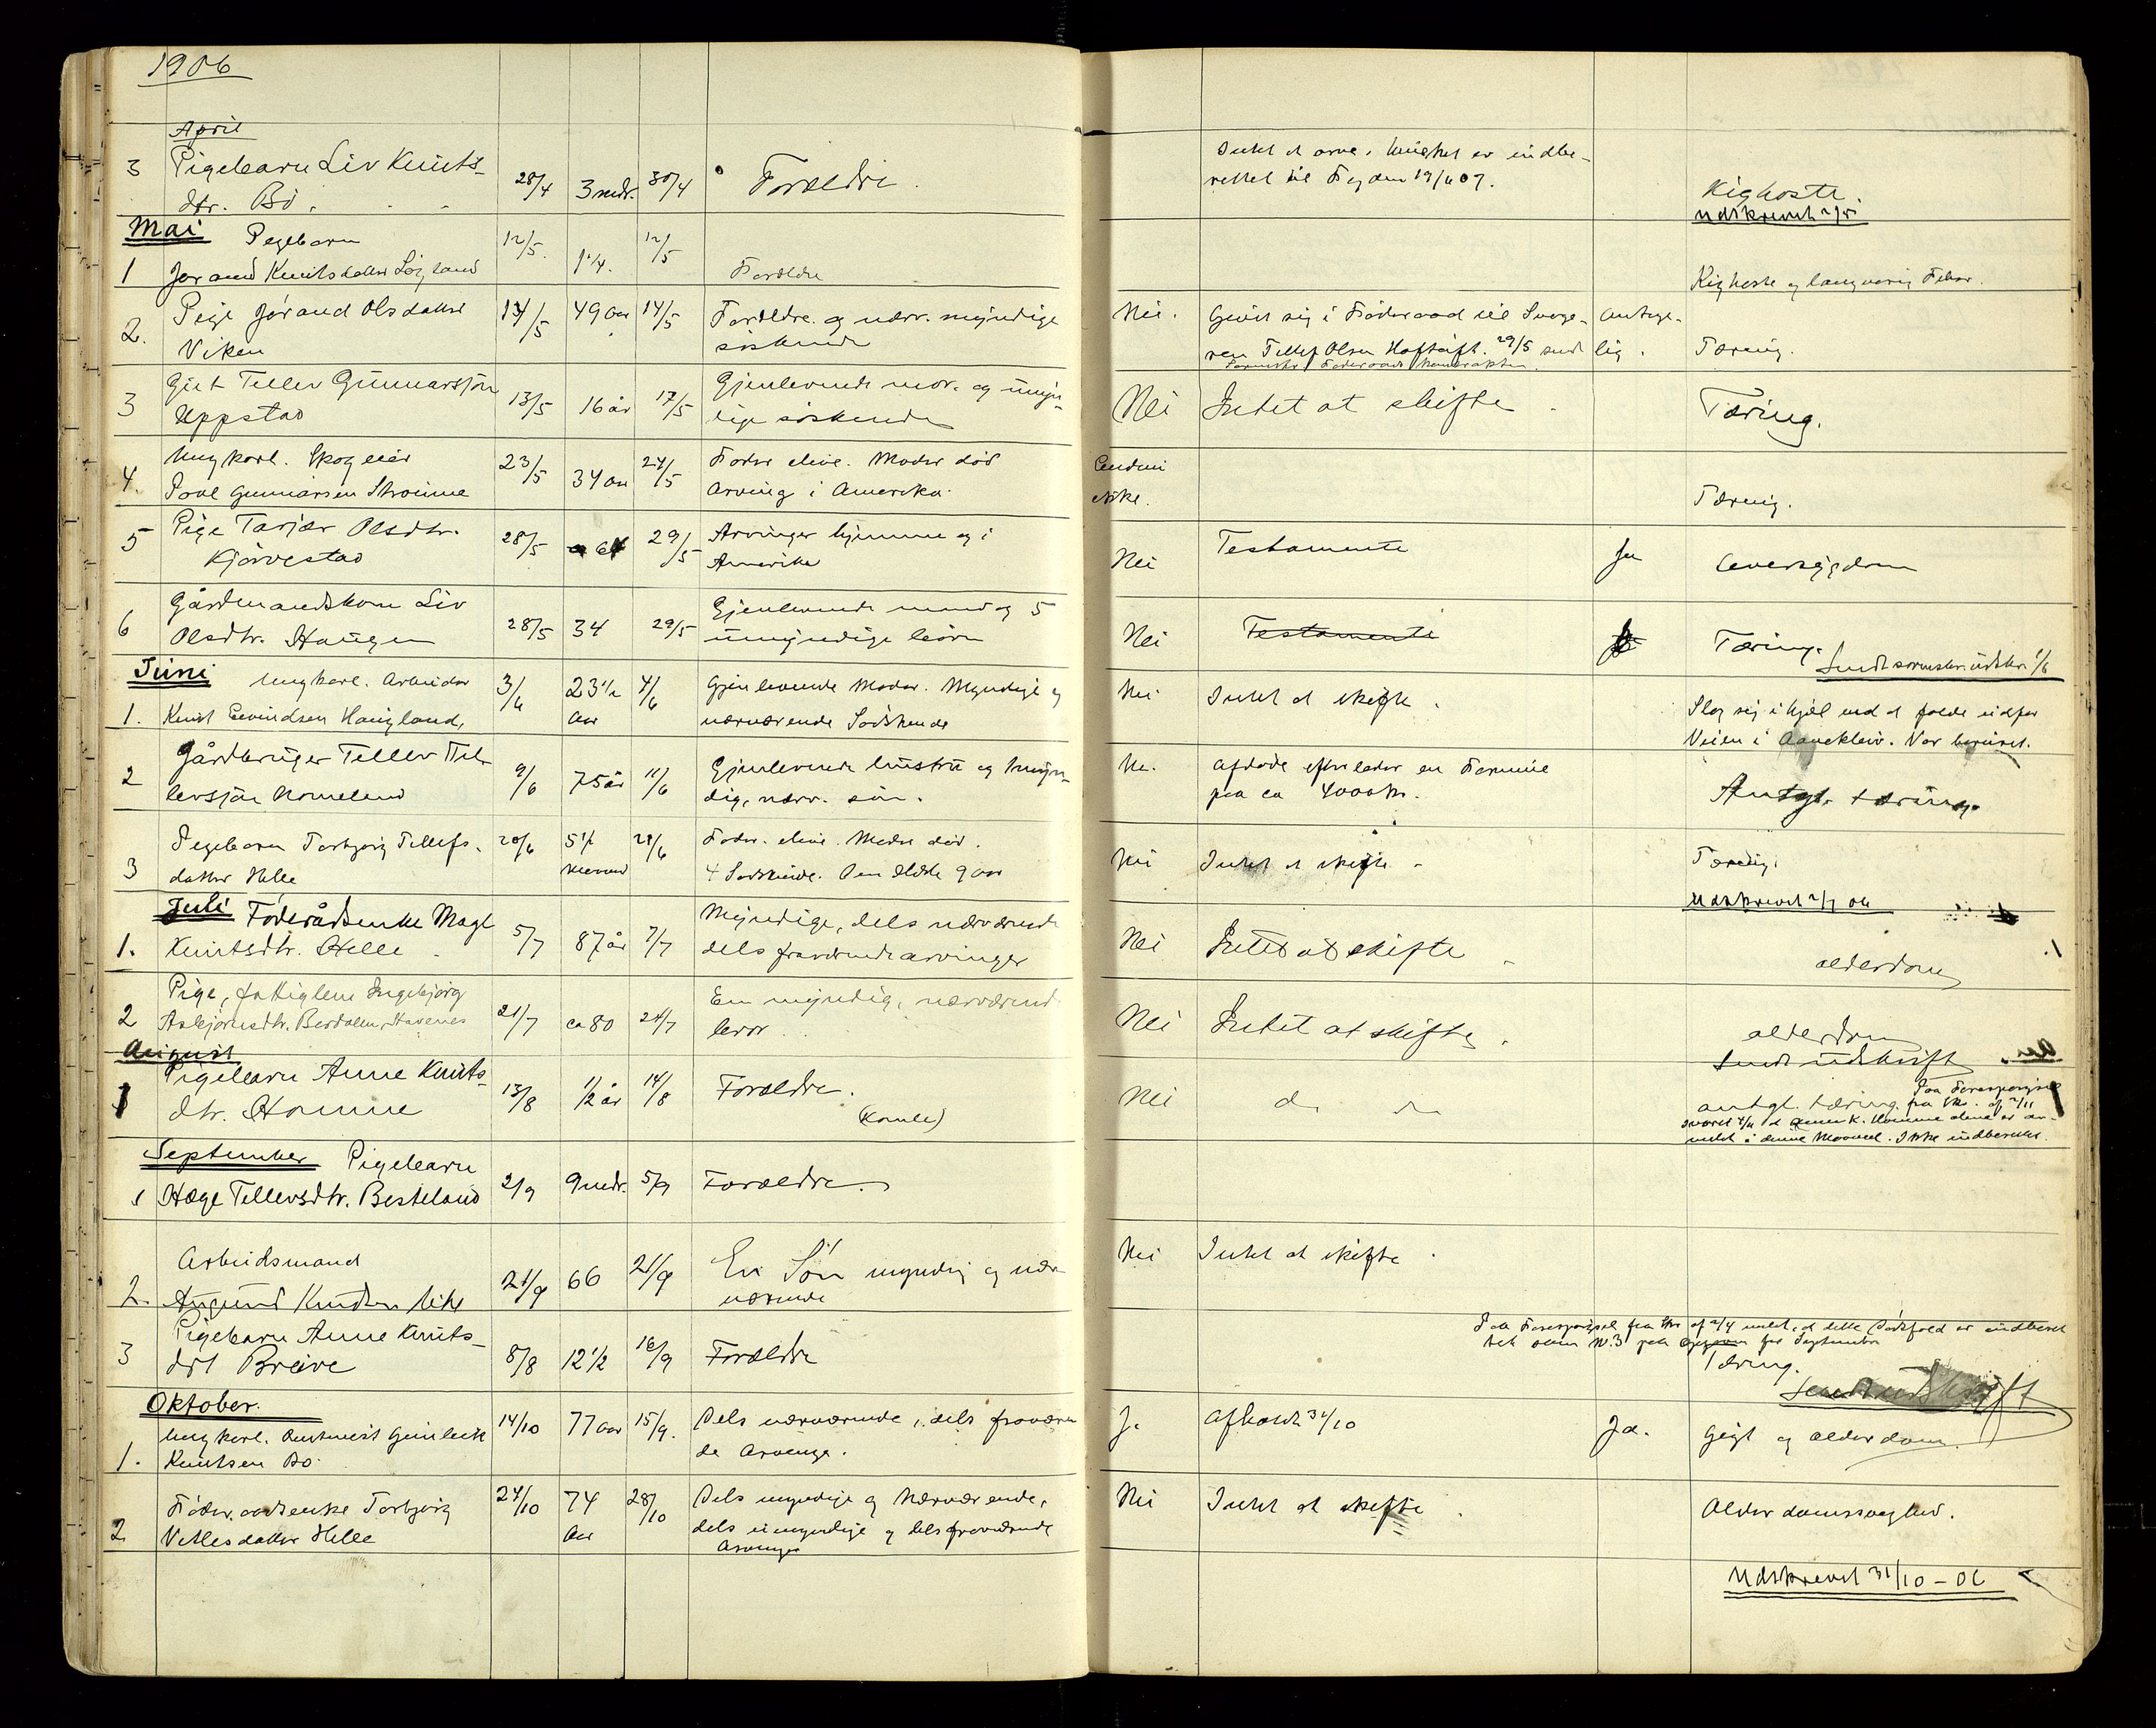 1906
April
3 Pigebarn Liv Knuts-
dtr. Bö. 28/4 3 mdr. 30/4 Forældre.
Intet at arve,
den 19/4 07.
Kighoste.
Udskrevet 2/5
Mai Pigebarn
1 Jorand Knutsdatter 12/5 1 1/4. 12/5 Forældre
Kighoste og langvarig Feber.
2. Pige Jórand Olsdatter
Viken 14/5 49 Aar 14/5 Forældre og nærv. myndige
söskende
Nei. Givet sig i Föderaad til
Olsen 29/5 sendt
Antage-
lig. Tæring.
3 Gut Tellev Gunnarssön
Uppstad 13/5 16 år 17/5 Gjenlevende mor og umyn-
dige söskende
Nei Intet at skifte Tæring.
4. Ungkarl. Skogeier
Povl Gunnarsen Straume 23/5 34 Aar 24/5 Fader elive. Moder död
Arving i Amerika.
Endnu
ikke.
Tæring.
5 Pige Tarjær Olsdtr.
Kjörvestad 28/5 64 29/5 Arvinger hjemme og i
Amerika
Nei Testamente Ja Leversygdom
6 Gårdmandskone Liv
Olsdtr. Haugen 28/5 34 29/5 Gjenlevende mand og 5
umyndige börn
Nei Testamente Tæring.
Sendt sorenskr. udskr. 1/6
Juni Ungkarl. Arbeider
1. Knut Eivindsen Haugland, 3/6 23 1/2
Aar 4/6 Gjenlevende Moder. Myndige og
nærværende Södskende
Nei Intet at skifte.
Slog sig ihjel ved at falde udfor
Veien i Var beruset.
2 Gårdbruger Tellev Tel-
levsjön Homeland 9/6 75 år 11/6 Gjenlevende hustru og
dig, nærv. sön.
Nei. Afdöde efterlader en Formue
paa ca 4000 Kr.
Antgl. tæring.
3 Pigebarn Torbjörg Tellefs-
datter Helle 20/6 5 1/2
Maaned 28/6 Fader elive. Moder död.
4 Södskende. Den ældste 9 Aar
Nei Intet at skifte Tæring.
Udskrevet 2/7 06
Juli Föderådsenke Magl
1. Knutsdtr. Helle 5/7 87 år 7/7 Myndige, dels nærværende
dels fraværende arvinger
Nei Intet at skifte alderdom
2 Pige, fattiglem Ingebjörg
Asbjörnsdtr. 21/7 ca 80 24/7 En myndig, nærværende
bror
Nei Intet at skifte. alderdom
Sendt udskrift
August
1 Pigebarn Anne Knuts-
dtr. Homme 13/8 1/2 år 14/8 Forældre.
(Homle)
Nei do do
antgl. tæring. Paa Forespörgsel
fra Skr. af 2/11
svaret 4/11 at Anne K. Homme
meldt i denne Maaned. Ikke indberettet.
September Pigebarn
1 Hæge Tellevsdtr. Besteland 2/9 9 mdr. 5/9 Forældre.
Arbeidsmand
2. Augund Knudsen 21/9 66 21/9 En Sön myndig og nær-
værende
Nei Intet at skifte.
3 Pigebarn Anne Knuts-
dtr Breive 8/8 12 1/2 16/9 Forældre
Paa Forespörgsel fra Skr af 2/4 meldt, at dette Dödsfald er indberet-
tet som No. 3 for September
Tæring.
Sendt udskrift
Oktober.
1. Ungkarl. Gunleik
Knutsen Bö. 14/10 77 Aar 15/9. Dels nærværende, dels fraværen-
de Arvinge.
Ja Afholdt 31/10 Ja. Gigt og Alderdom.
2 Föderaadsenke Torbjörg
Vetlesdatter Helle 24/10 74
Aar 28/10 Dels myndige og Nærværende,
dels umyndige og dels fraværende
Arvinger
Nei Intet at skifte. Alderdomssvaghed.
Udskrevet 31/10-06